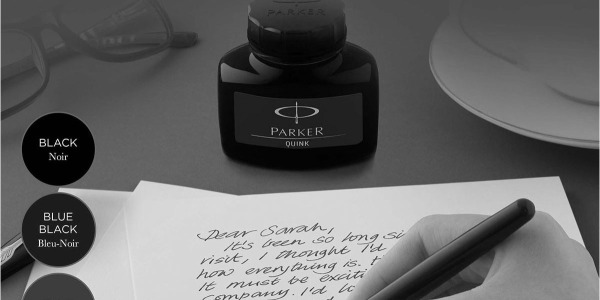 PARKER
PARKER
QUINK
BLACK
Noir
BLUE
BLACK
Bleu-Noir
Dear Sarah,
It's been so long si
visit, I thought I'd
how everything is.
It must be exciti
company. I'd lo